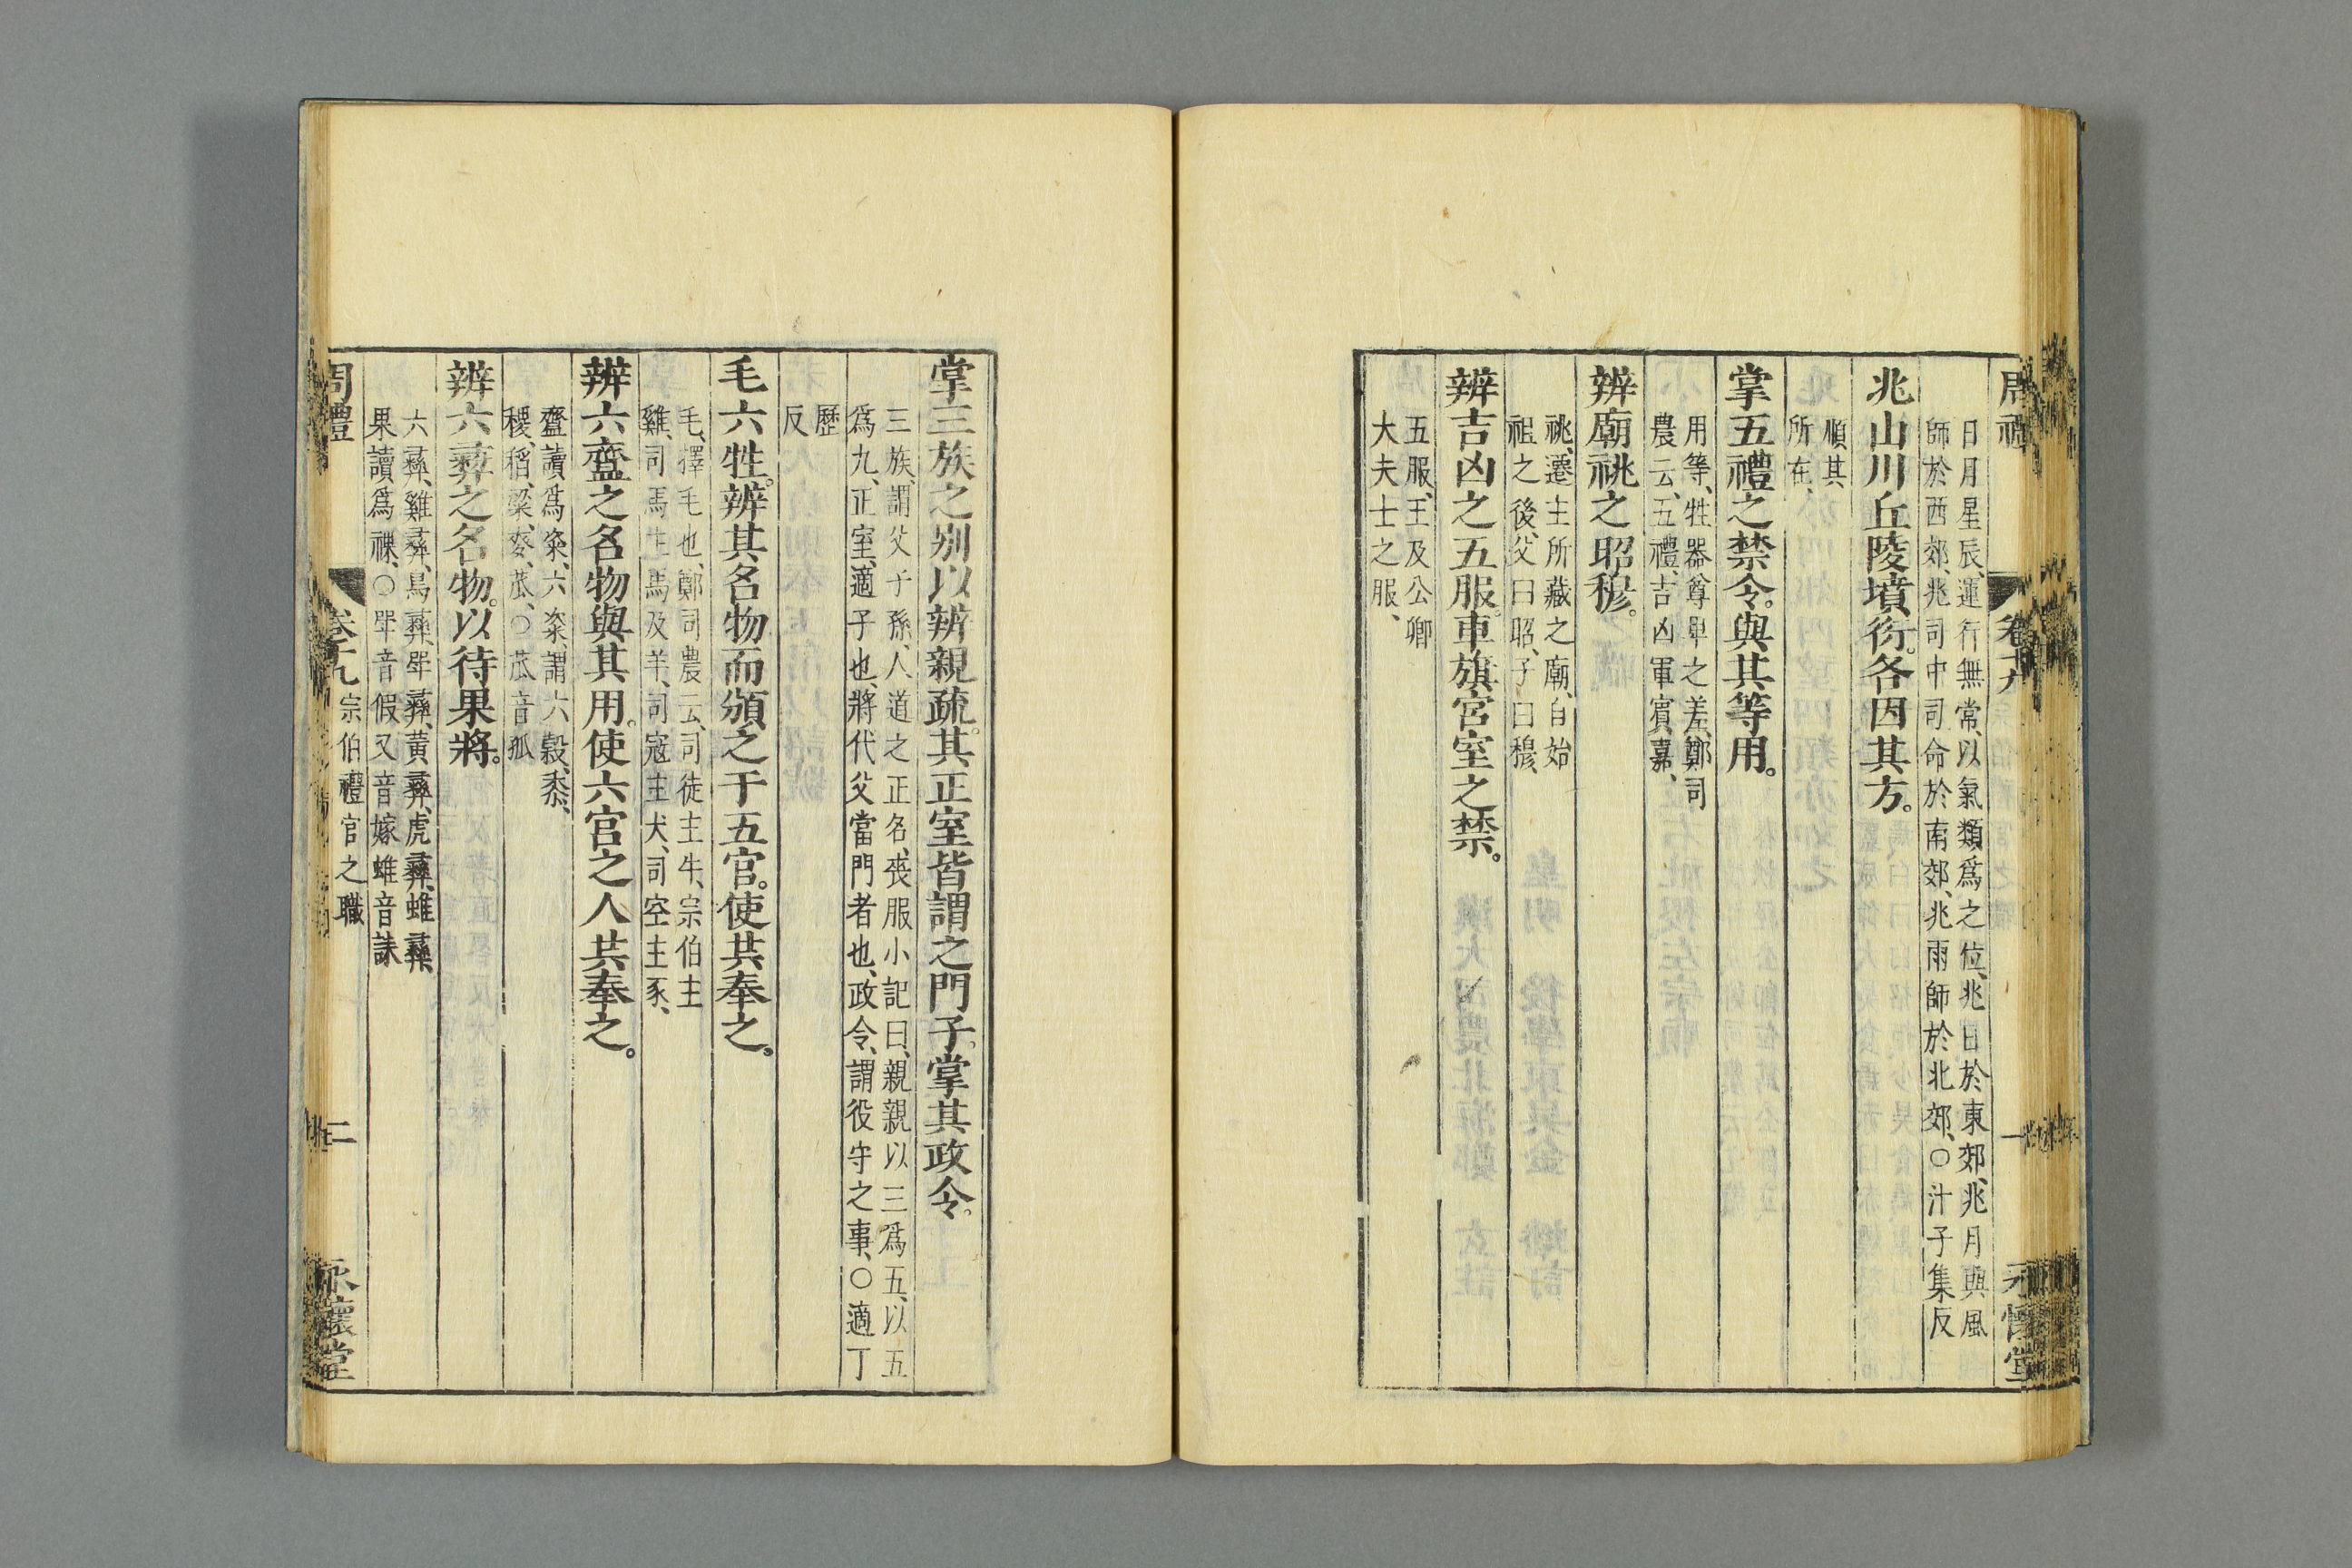 周禮
卷十九
一
永懷堂
日月星辰、運行無常、以氣類爲之位、兆日於東郊、兆月與風
師於西郊、兆司中司命於南郊、兆雨師於北郊、○汁子集反
兆山川丘陵墳衍。各因其方。
順其
所在、
掌五禮之禁令。與其等用。
用等、牲器尊卑之差、鄭司
農云、五禮、吉凶軍賓嘉、
辨廟祧之昭穆。
祧、遷主所藏之廟、自始
祖之後、父曰昭、子曰穆、
辨吉凶之五服。車旗宮室之禁。
五服、王及公卿
大夫士之服、
掌三族之別以辨親疏。其正室皆謂之門子。掌其政令。
三族、謂父子孫、人道之正名、喪服小記曰、親親以三爲五、以五
爲九、正室、適子也、將代父當門者也、政令、謂役守之事、○適丁
歷
反
毛六牲。辨其名物而頒之于五官。使共奉之。
毛、擇毛也、鄭司農云、司徒主牛、宗伯主
雞、司馬主馬及羊、司寇主犬、司空主豕、
辨六齍之名物與其用。使六官之人共奉之。
齍讀爲粢、六粢、謂六穀、黍、
稷、稻、粱、麥、苽、○苽音孤
辨六彝之名物。以待果將。
六彝、雞彝、鳥彝、斝彝、黃彝、虎彝、蜼彝
果讀爲祼、○斝音假又音嫁蜼音誄
周禮
卷十九
宗伯禮官之職
二
永懷堂